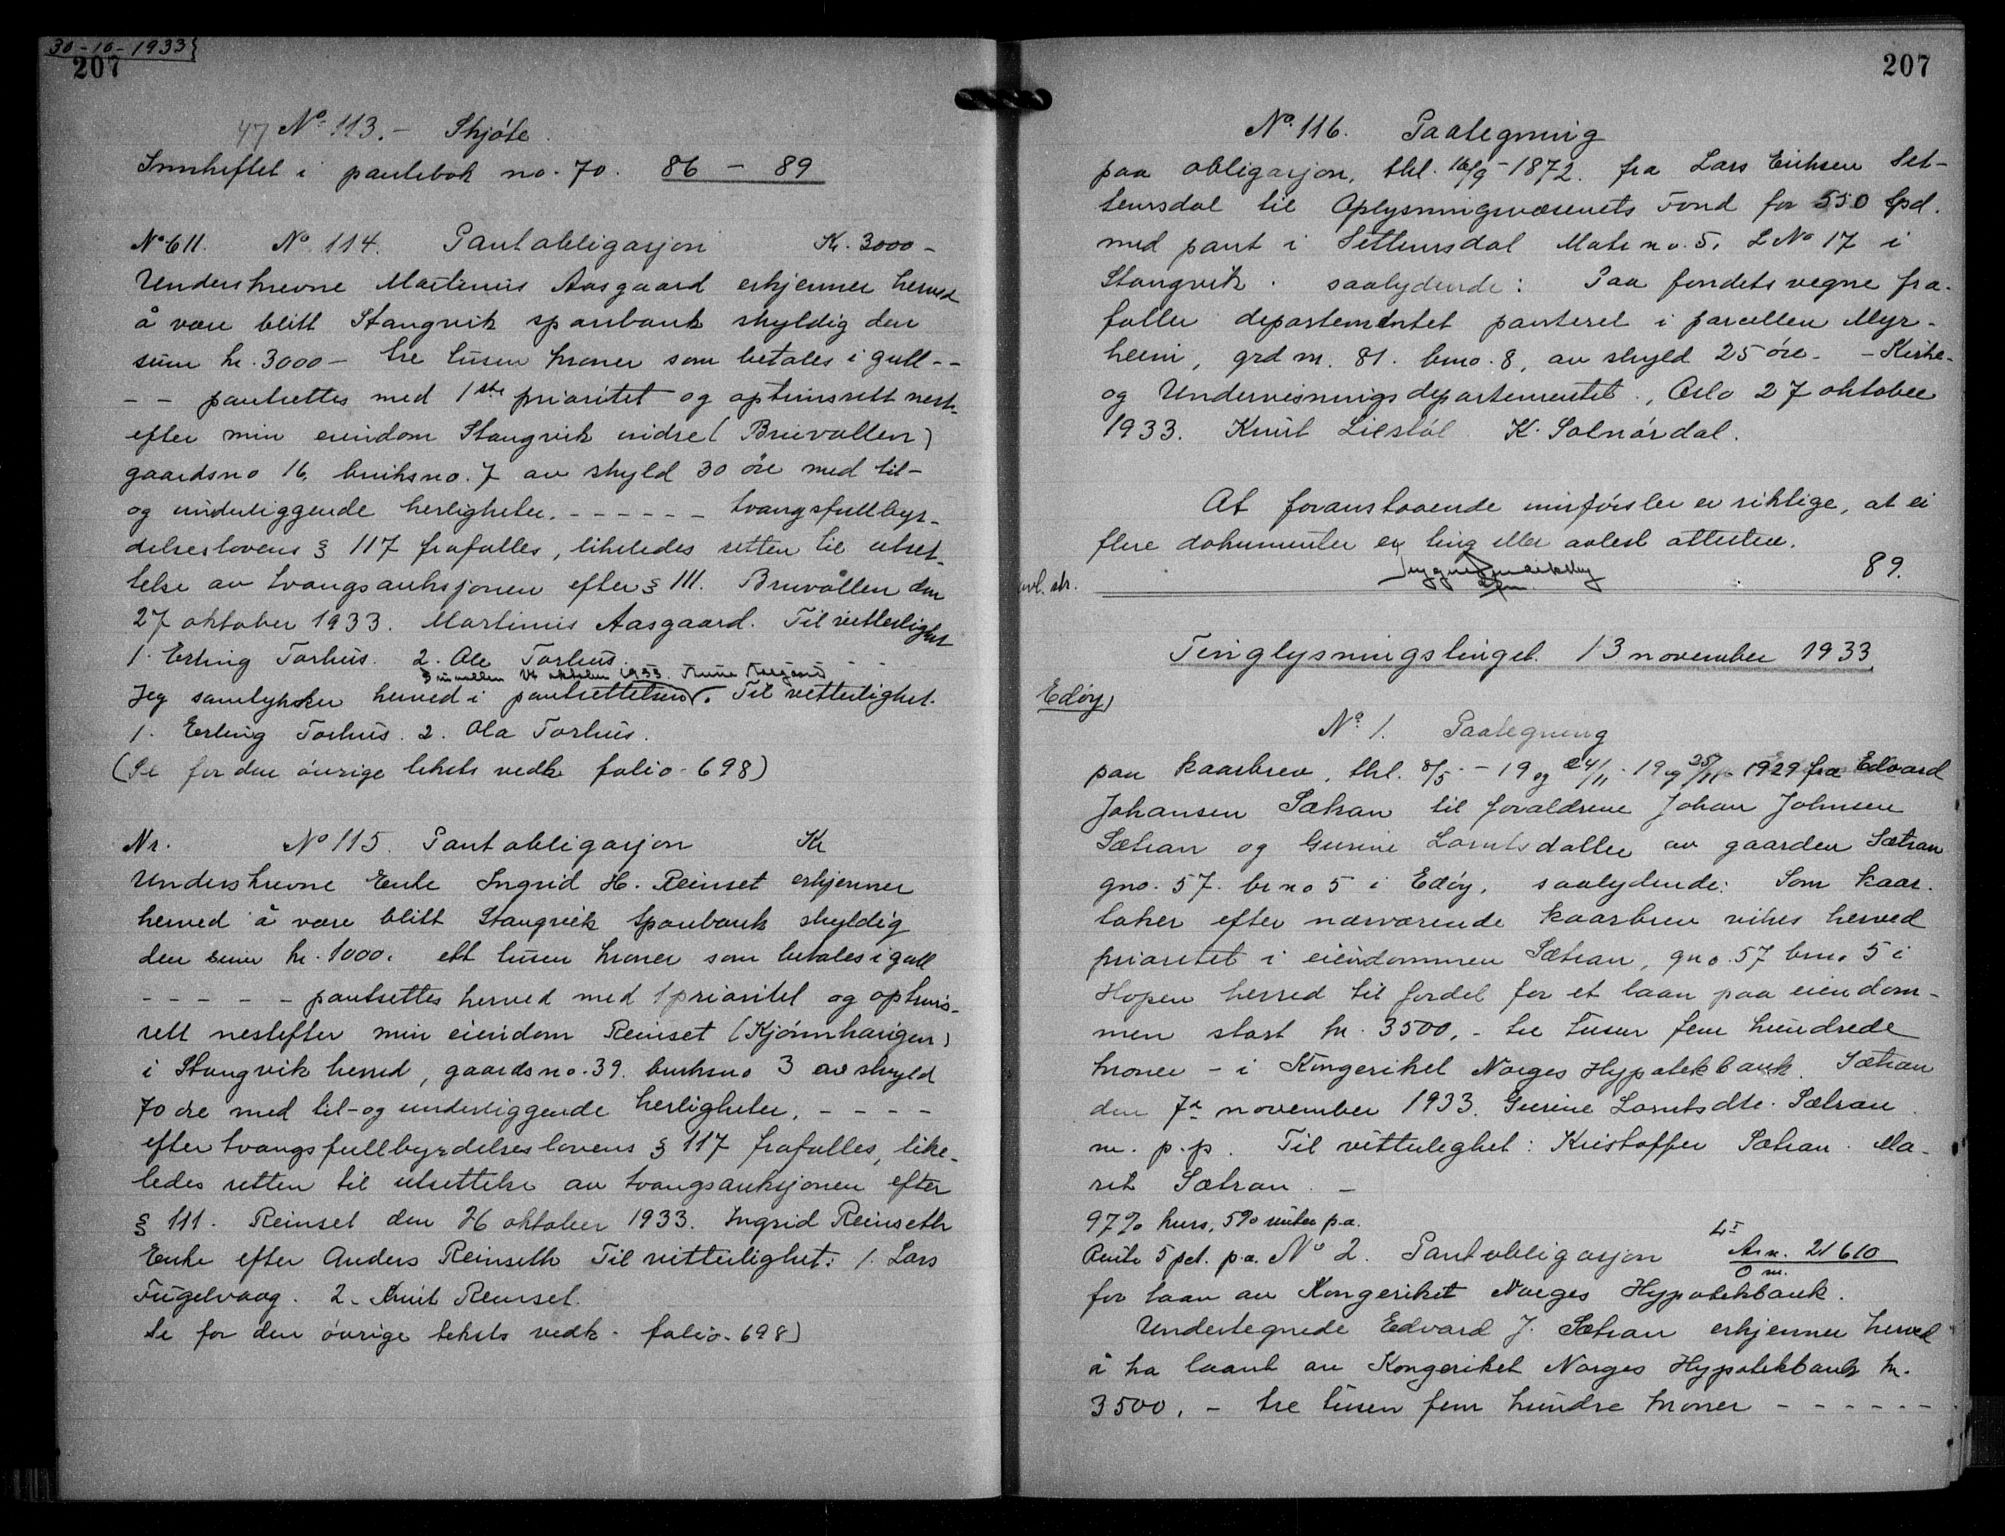 30-10-1933
207
47 No 113. - Skjøte.
Innheftet i pantebok no. 70. 86 - 89
No 611. No 114. Pantobligasjon Kr. 3000 -
Underskrevne Martinus Aasgaard erkjenner herved
å være blitt Stangvik sparbank skyldig den
sum kr. 3000 - tre tusen kroner som betales i gull - -
- - pantsettes med 1ste prioritet og optrinsrett nest-
efter min eiendom Stangvik indre (Bruvollen)
gaardsno 16, bruksno. 7 av skyld 30 øre med til-
og underliggende herligheter. - - - - - - tvangsfullbyr-
delseslovens § 117 frafalles, likeledes retten til utset-
telse av tvangsauksjonen efter § 111. Bruvollen den
27 oktober 1933. Martinus Aasgaard. Til vitterlighet
1. Erling Torhus. 2. Ole Torhus. - -
Bruvollen 27 oktober 1933. Anne Aasgaard
Jeg samtykker herved i pantsettelsen. Til vitterlighet.
1. Erling Torhus. 2. Ola Torhus.
(Se for den øvrige teksts vedk. folio - 698)
Nr. No 115. Pantobligasjon Kr
Underskrevne Enke Ingrid H. Reinset erkjenner
herved å være blitt Stangvik Sparbank skyldig
den sum kr. 1000. ett tusen kroner som betales i gull
- - - - - pantsettes herved med 1 prioritet og optrins-
rett nestefter min eiendom Reinset (Kjønnhaugen)
i Stangvik herred, gaardsno. 39. bruksno 3 av skyld
70 øre med til- og underliggende herligheter. - - - -
efter tvangsfullbyrdelseslovens § 117 frafalles, like-
ledes retten til utsettelse av tvangsauksjonen efter
§ 111. Reinset den 26 oktober 1933. Ingrid Reinseth
Enke efter Anders Reinseth Til vitterlighet: 1. Lars
Fugelvaag. 2. Knut Reinset.
Se for den øvrige teksts vedk. folio - 698)
207
No. 116. Paategning
paa obligasjon, thl. 16/9 - 1872. fra Lars Eriksen Set-
temsdal til Oplysningsvæsenets Fond for 550 Spd.
med pant i Settemsdal Matr. no. 5. L No 17 i
Stangvik. saalydende: Paa fondets vegne fra-
faller departementet panteret i parcellen Myr-
heim, grd nr. 81. brno. 8, av skyld 25 øre. - Kirke-
og Undervisningsdepartementet, Oslo 27 oktober
1933. Knut Liestøl K. Solnørdal.
At foranstaaende innførsler er riktige, at ei
flere dokumenter er ting eller avlest attesteres.
avl. str. 89.
Tinglysningstinget 13 november 1933
Edøy
No 1. Paategning
paa kaarbrev, thl. 8/5 - 19 og 24/11 - 19 og 25/11 - 1929 fra Edvard
Johansen Sætran til forældrene Johan Johnsen
Sætran og Gurine Lorntsdatter av gaarden Sætran
gno. 57. brno 5 i Edøy, saalydende: Som kaar-
taker efter nærværende kaarbrev vikes herved
prioritet i eiendommen Sætran, gno. 57 brno. 5 i
Hopen herred til fordel for et laan paa eiendom-
men stort kr. 3500. - tre tusen fem hundrede
kroner - i Kongeriket Norges Hypotekbank. Sætran
den 7de november 1933. Gurine Lorntsdtr. Sætran.
m. p. p. Til vitterlighet: Kristoffer Sætran. Ma-
rit Sætran. -
97% kurs, 5% renter p.a.
Rente 5 pct. p.a. No 2. Pantobligasjon Ar n. 21610
for laan av Kongeriket Norges Hypotekbank.
Undertegnede Edvard J. Sætran erkjenner herved
å ha laant av Kongeriket Norges Hypotekbank kr.
3500. - tre tusen fem hundre kroner - - - - - -